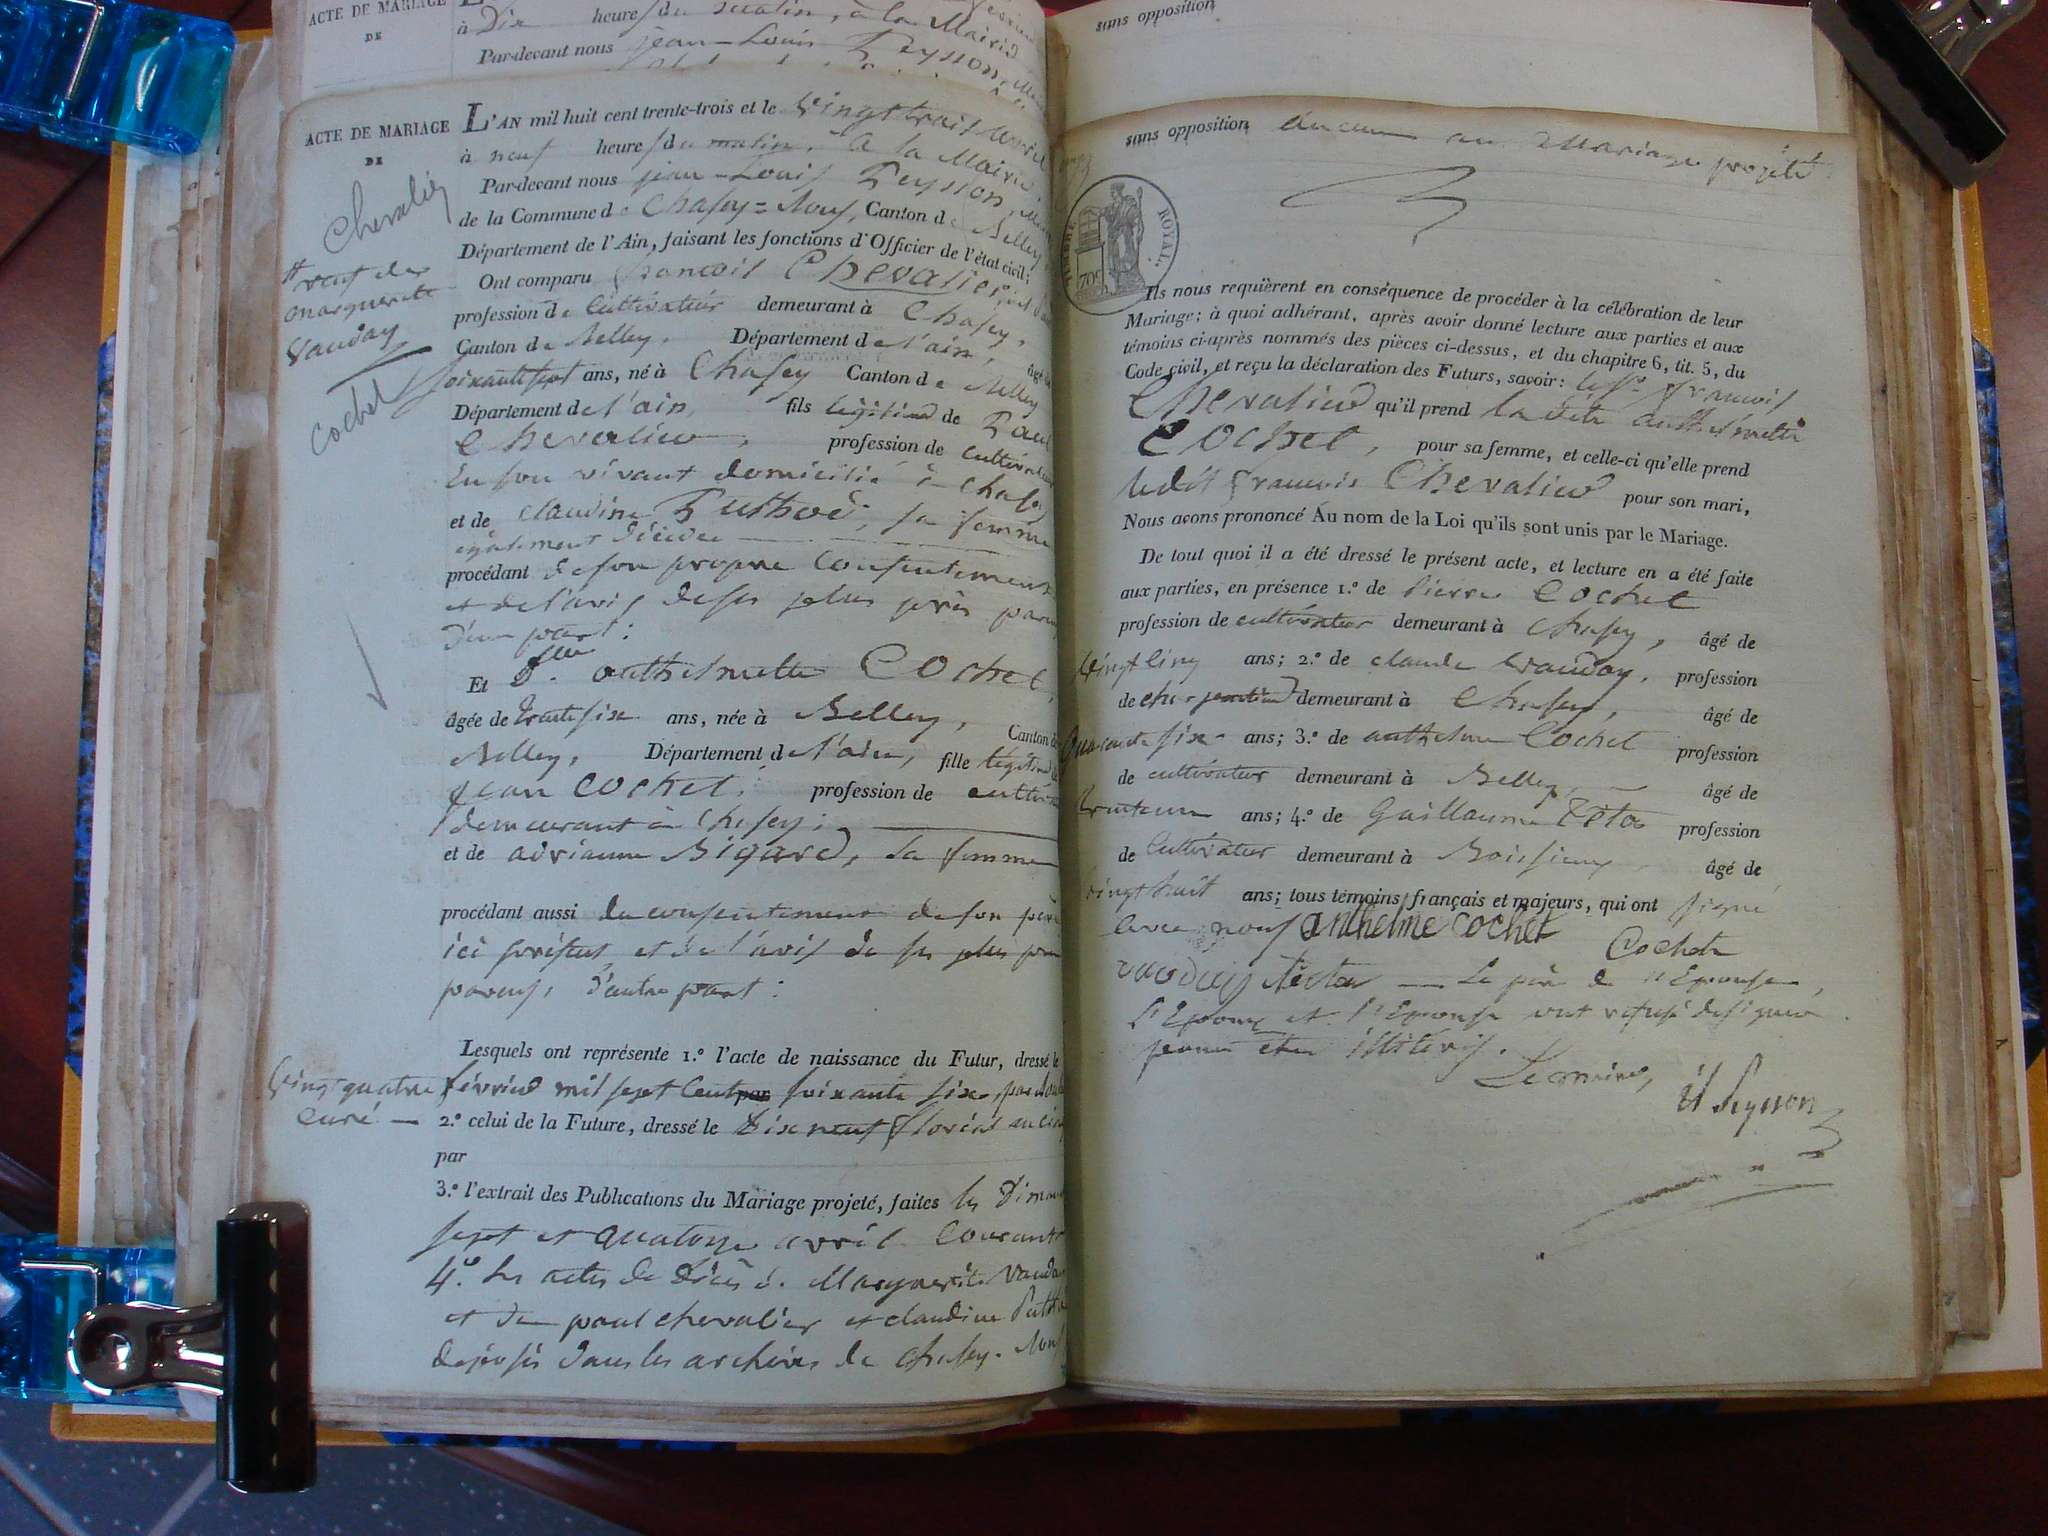 ACTE DE MARIAGE
DE
à Dix heures du matin, à la Mairie
Par-devant nous jean-Louis Peysson, 
sans opposition
ACTE DE MARIAGE
DE
Chevalier
veuf de
marguerite
Vauday
Cochet
L'AN mil huit cent trente-trois et le Vingttrois avril
à neuf heures du matin, à la Mairie
Par-devant nous jean-Louis Peysson, Maire
de la Commune de Chasey=Neuf, Canton de Belley
Département de l'Ain, faisant les fonctions d'Officier de l'état civil;
Ont comparu françois Chevalier,
profession de Cultivateur demeurant à Chasey,
Canton de Belley, Département de l'ain, âgé de
soixantesept ans, né à Chasey Canton de Belley
Département de l'ain, fils légitime de Paul
Chevalier, profession de Cultivateur
En son vivant domicilié à Chasey
et de Claudine Puthod, sa femme
également décédée
procédant de son propre Consentement
et de l'avis de ses plus près parens
d'une part:
Et Dlle. anthelmette Cochet,
âgée de trentesix ans, née à Belley, Canton de
Belley, Département de l'ain, fille légitime de
Jean Cochet, profession de cultiv
demeurant à Chasey;
et de adrianne Bigard, sa femme
procédant aussi du consentement de son père
ici présent, et de l'avis de ses plus près
parens, d'autre part:
Lesquels ont représenté 1.º l'acte de naissance du Futur, dressé le
Vingt quatre février mil sept Cent par soixante six, par
Curé — 2.º celui de la Future, dressé le Dix neuf floréal an cinq
par
3.º l'extrait des Publications du Mariage projeté, faites les Diman
sept et quatorze avril Courant
4.º les actes de Décès de Marguerite Vauday
et de paul chevalier et claudine Puthod
déposés dans les archives de Chasey-Neuf
sans opposition aucune au Mariage projeté.
TIMBRE ROYAL.
70c
Ils nous requièrent en conséquence de procéder à la célébration de leur
Mariage; à quoi adhérant, après avoir donné lecture aux parties et aux
témoins ci-après nommés des pièces ci-dessus, et du chapitre 6, tit. 5, du
Code civil, et reçu la déclaration des Futurs, savoir: le Sr. françois
Chevalier qu'il prend la dite anthelmette
Cochet, pour sa femme, et celle-ci qu'elle prend
ledit françois Chevalier pour son mari,
Nous avons prononcé Au nom de la Loi qu'ils sont unis par le Mariage.
De tout quoi il a été dressé le présent acte, et lecture en a été faite
aux parties, en présence 1.º de Pierre Cochet
profession de cultivateur demeurant à Chasey, âgé de
Vingt Cinq ans; 2.º de claude Vauday, profession
de charpentier demeurant à Chasey, âgé de
Quarante six ans; 3.º de anthelme Cochet profession
de cultivateur demeurant à Belley, âgé de
trenteun ans; 4.º de Guillaume Téta profession
de Cultivateur demeurant à âgé de
vingt huit ans; tous témoins français et majeurs, qui ont signé
avec nous anthelme cochet
Cochet
vauday — Le père de l'Epouse,
l'Epoux et l'Epouse ont refusé de signer
pour être illitérés.
Le maire,
Peysson